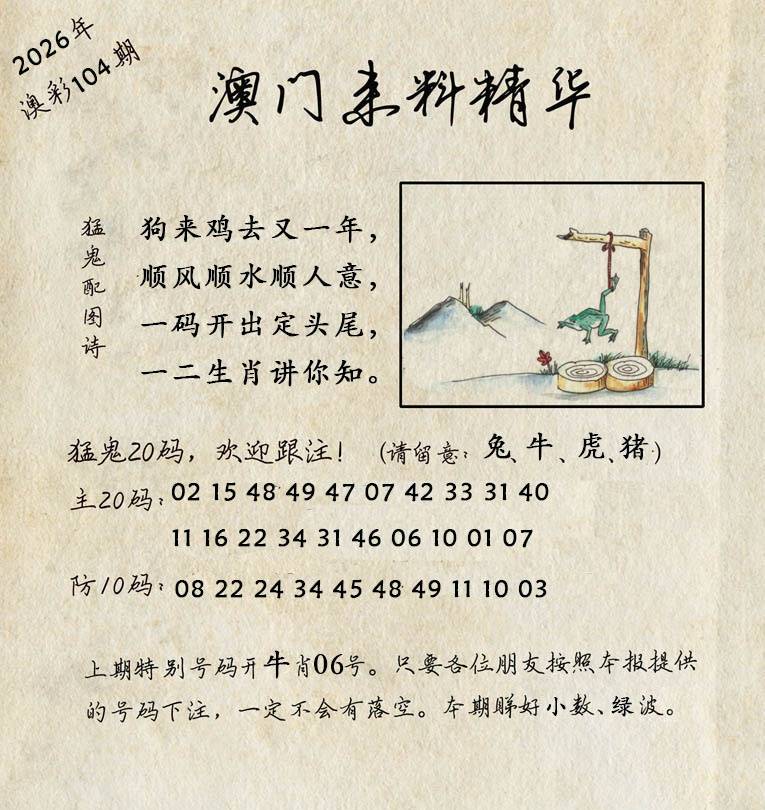 2026年
澳彩104期
澳门来料精华
猛鬼配图诗
狗来鸡去又一年，
顺风顺水顺人意，
一码开出定头尾，
一二生肖讲你知。
猛鬼20码，欢迎跟注！（请留意：兔、牛、虎、猪）
主20码：02 15 48 49 47 07 42 33 31 40
11 16 22 34 31 46 06 10 01 07
防10码：08 22 24 34 45 48 49 11 10 03
上期特别号码开牛肖06号。只要各位朋友按照本报提供
的号码下注，一定不会有落空。本期睇好小数、绿波。